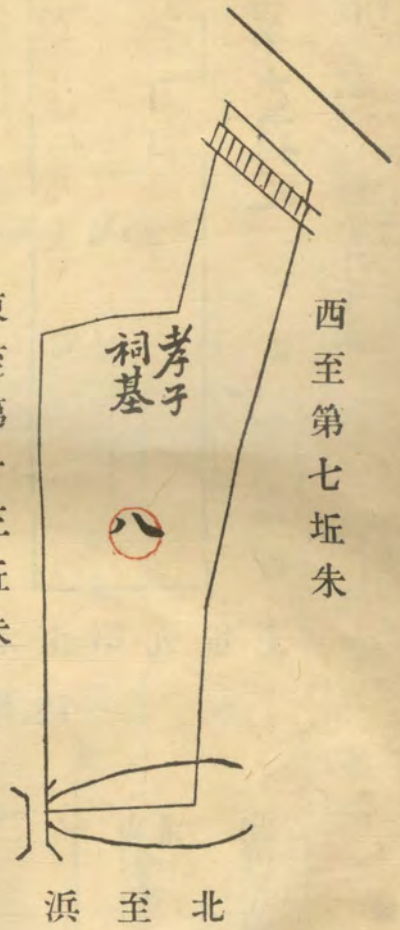 西至第七坵朱
孝子
祠基
八
北至浜